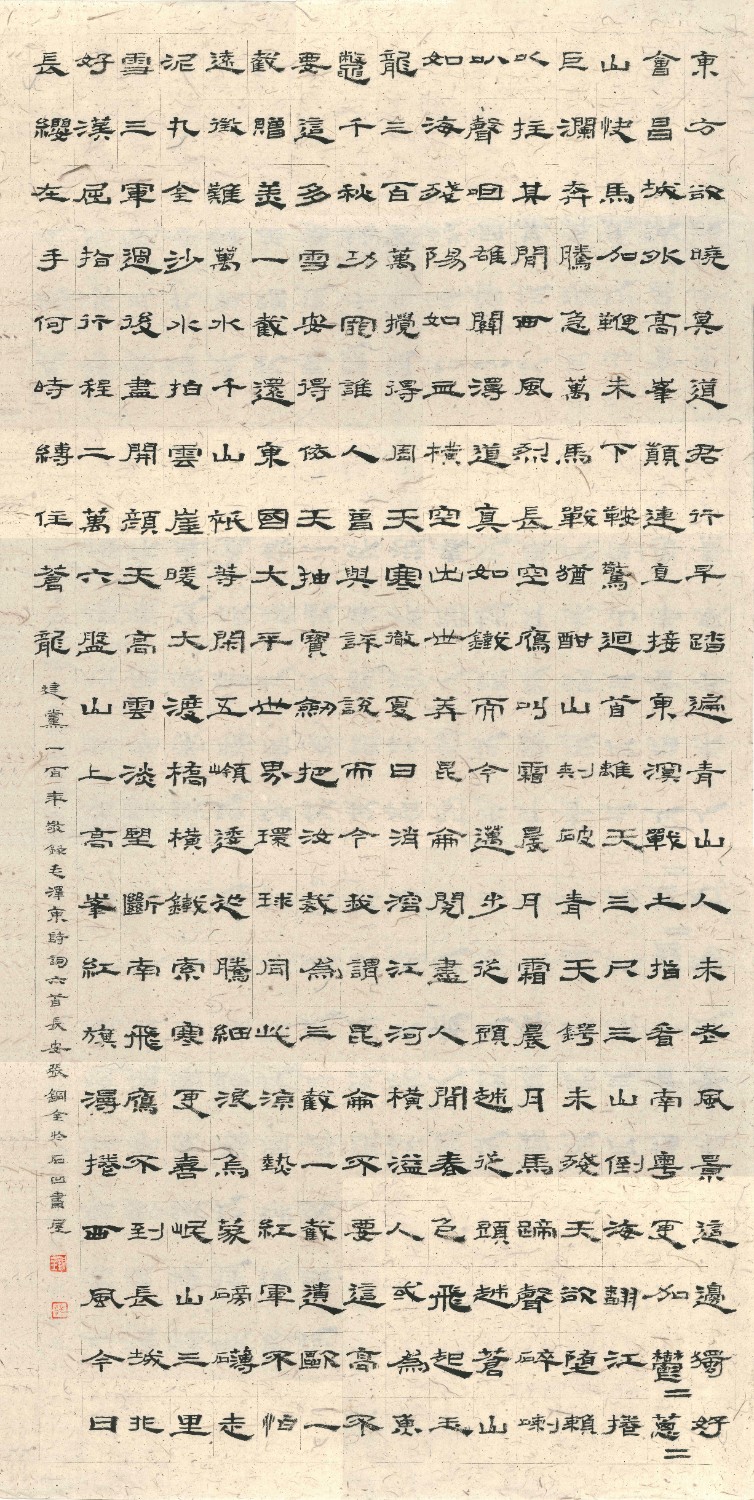 東方欲曉莫道君行早踏遍青山人未老風景這邊獨好
會昌城外高峯顛連直接東溟戰士指看南粵更加鬱二蔥二
山快馬加鞭未下鞍驚迴首離天三尺三山倒海翻江捲
巨瀾奔騰急萬馬戰猶酣山刺破青天鍔未殘天欲墮賴
以拄其間西風烈長空雁叫霜晨月霜晨月馬蹄聲碎喇
叭聲咽雄關漫道真如鐵而今邁步從頭越從頭越蒼山
如海殘陽如血橫空出世莽昆侖閱盡人間春色飛起玉
龍三百萬攪得周天寒徹夏日消溶江河橫溢人或為魚
鱉千秋功罪誰人曾與評說而今我謂昆侖不要這高不
要這多雪安得依天抽寶劍把汝裁為三截一截遺歐一
截贈美一截還東國太平世界環球同此涼熱紅軍不怕
遠徵難萬水千山祇等閑五嶺逶迤騰細浪烏蒙磅礴走
泥丸金沙水拍雲崖暖大渡橋橫鐵索寒更喜岷山三里
雪三軍過後盡開顏天高雲淡望斷南飛雁不到長城非
好漢屈指行程二萬六盤山上高峯紅旗漫捲西風今日
長纓在手何時縛住蒼龍
建黨一百年敬錄毛澤東詩詞六首長安張鋼全於石凹書屋